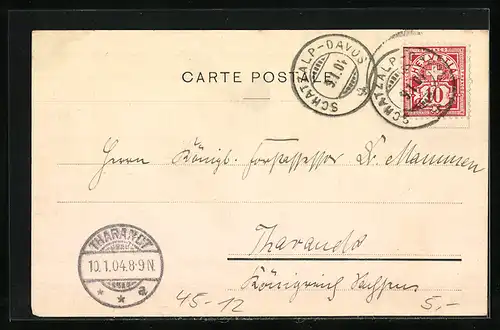 CARTE POSTALE
SCHATZALP-DAVOS
SCHATZALP-DAVOS
10
Herrn Königl. Forstassessor Dr. Mammen
Tharandt
Königreich Sachsen
THARANDT
10.1.04.8-9N.
* * a
45-12
5,-